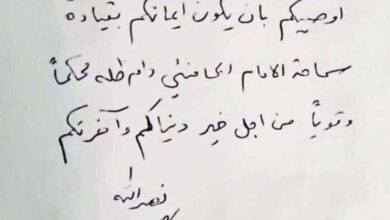 اوصيكم بان يكون ايمانكم بقيادة
سماحة الامام الخامنئي دام ظله محكماً
وقوياً من اجل خير دنياكم وآخرتكم
نصرالله